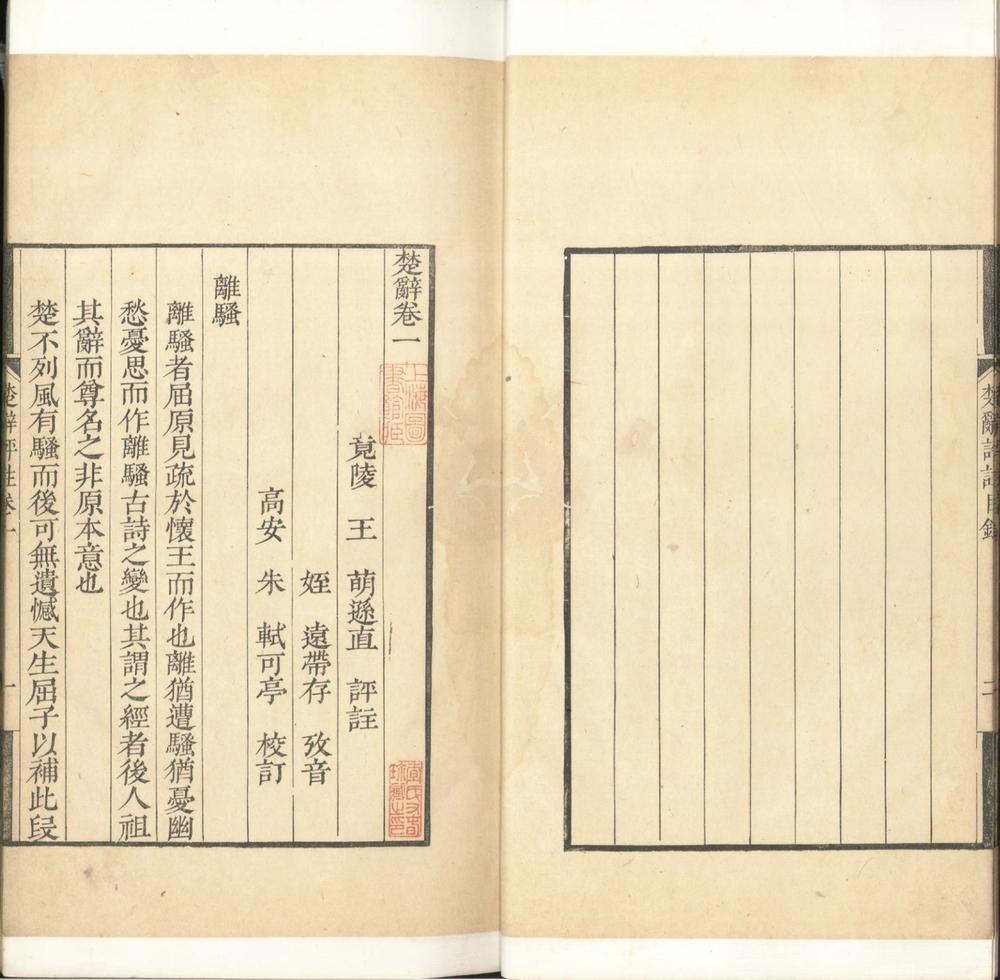 楚辭評註目錄
二
楚辭卷一
上海圖書館藏
竟陵 王 萌遜直 評註
姪 遠帶存 攷音
高安 朱 軾可亭 校訂
離騷
離騷者屈原見疏於懷王而作也離猶遭騷猶憂幽
愁憂思而作離騷古詩之變也其謂之經者後人祖
其辭而尊名之非原本意也
楚不列風有騷而後可無遺憾天生屈子以補此段
楚辭評註卷一
一